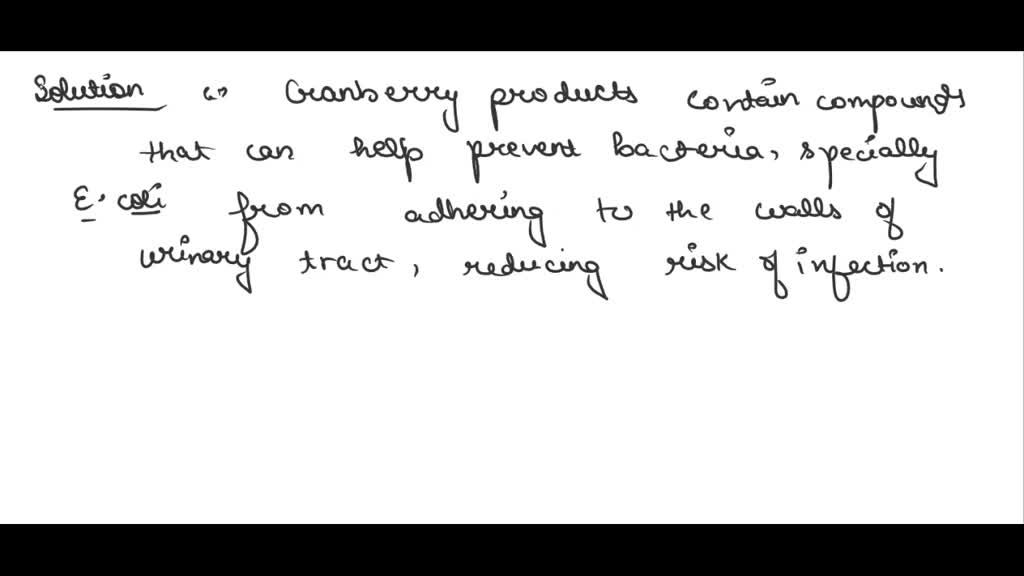 Solution (i) Cranberry products contain compounds
that can help prevent bacteria, specially
E. coli from adhering to the walls of
urinary tract, reducing risk of infection.